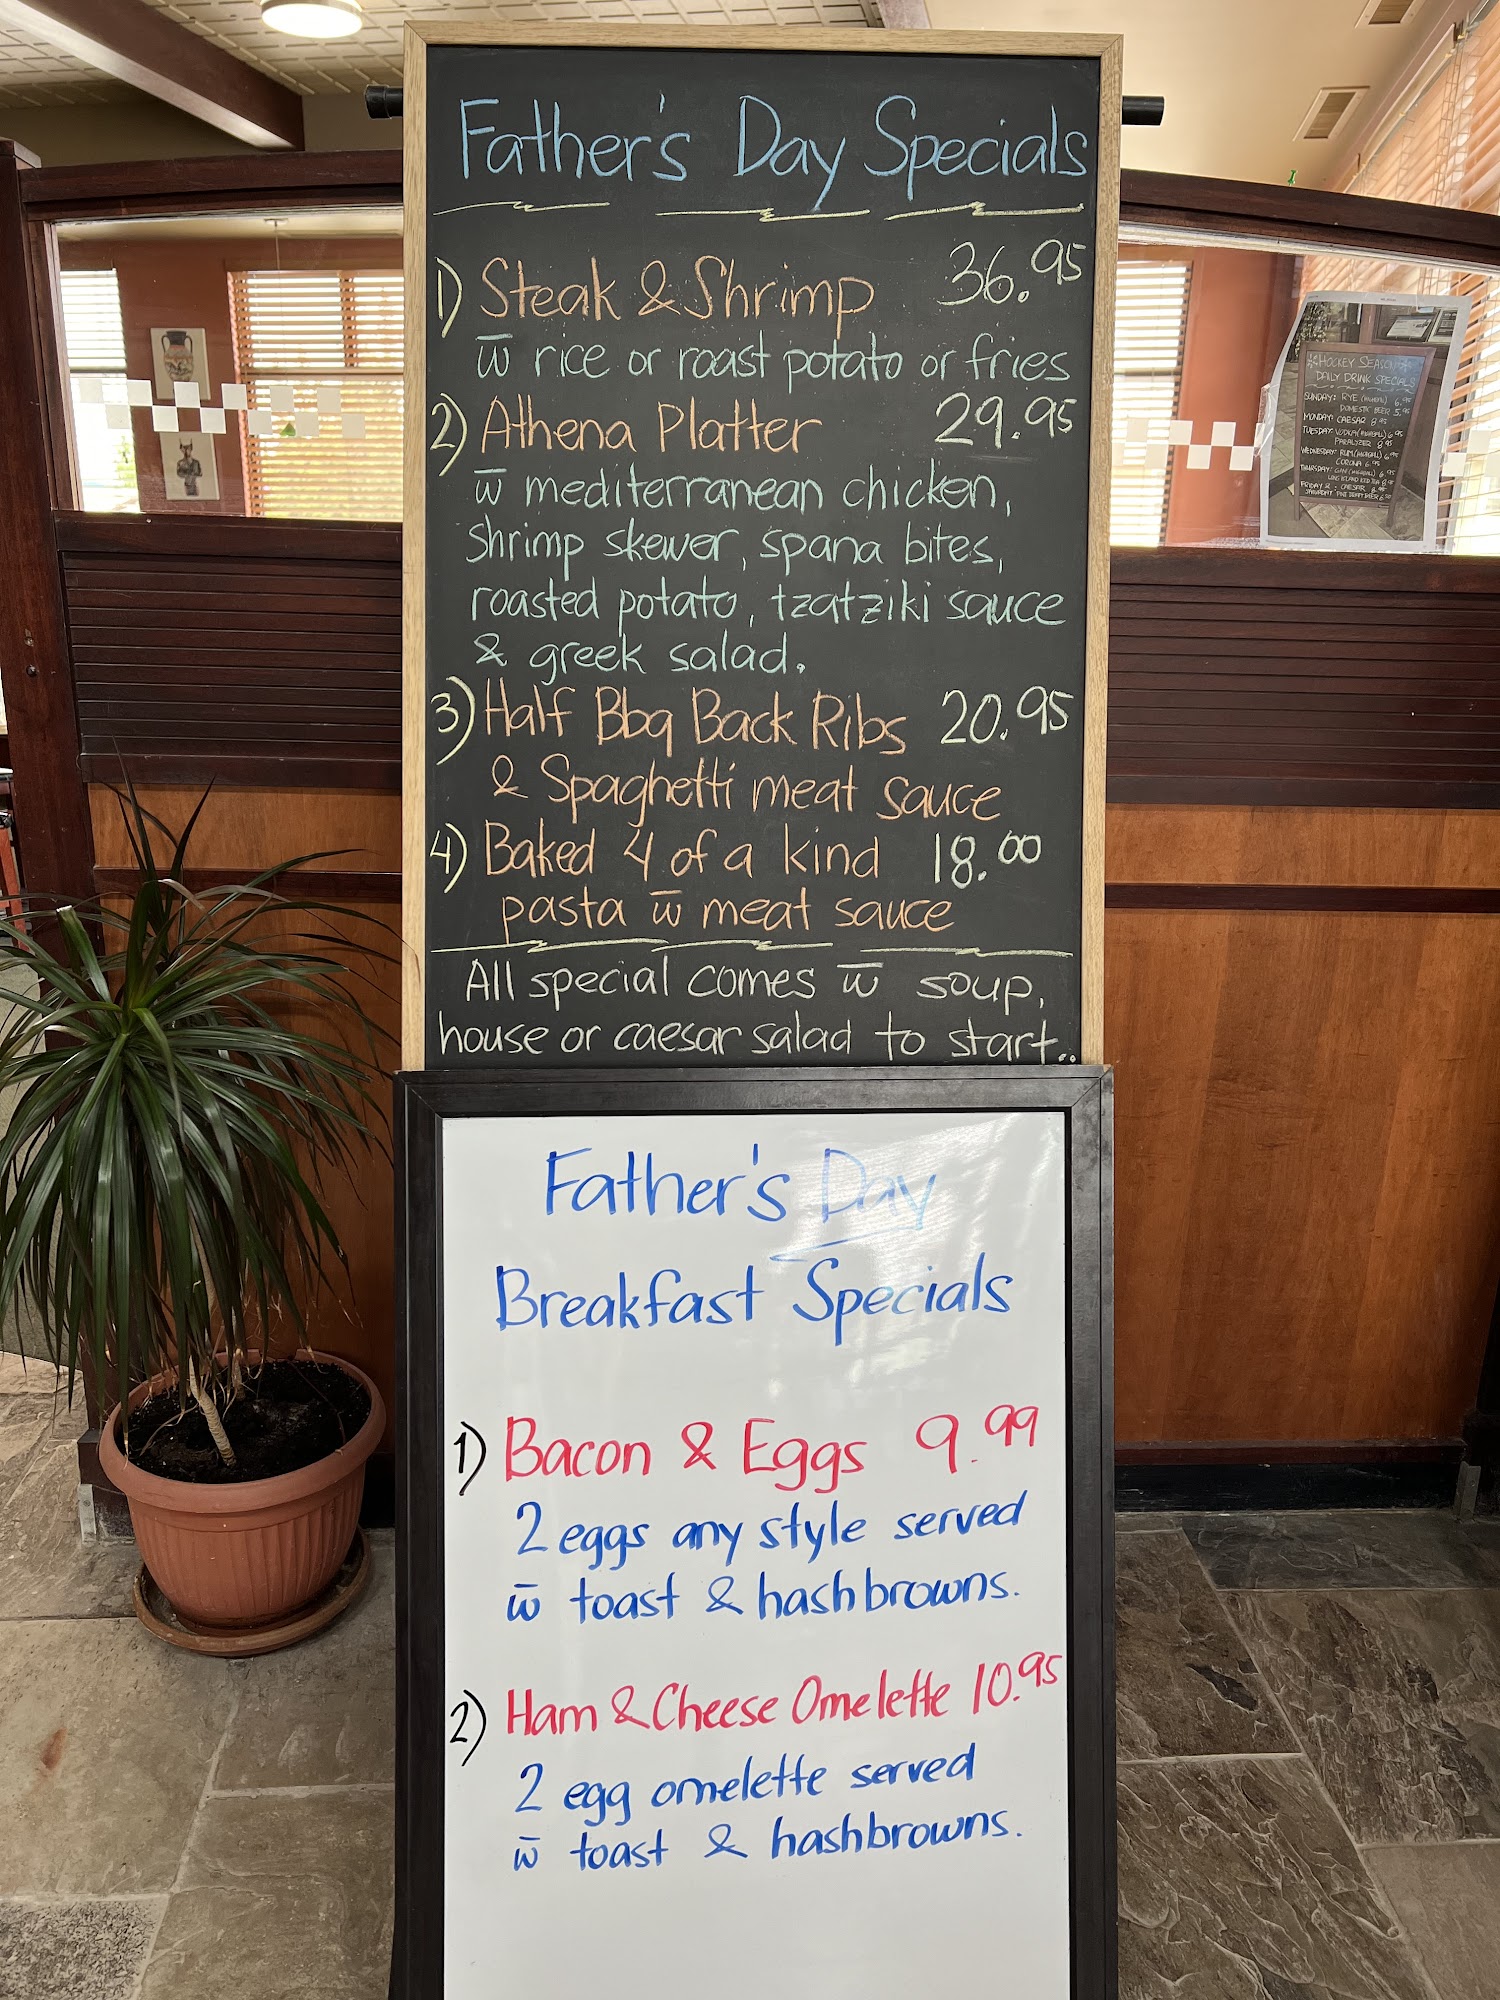 Father's Day Specials
1) Steak & Shrimp 36.95
w̅ rice or roast potato or fries
2) Athena Platter 29.95
w̅ mediterranean chicken,
shrimp skewer, spana bites,
roasted potato, tzatziki sauce
& greek salad.
3) Half Bbq Back Ribs 20.95
& Spaghetti meat sauce
4) Baked 4 of a kind 18.00
pasta w̅ meat sauce
All special comes w̅ soup,
house or caesar salad to start..
Father's Day
Breakfast Specials
1) Bacon & Eggs 9.99
2 eggs any style served
w̅ toast & hashbrowns.
2) Ham & Cheese Omelette 10.95
2 egg omelette served
w̅ toast & hashbrowns.
HOCKEY SEASON
DAILY DRINK SPECIALS
SUNDAY: RYE (HIGHBALL) 6.95
DOMESTIC BEER 5.95
MONDAY: CAESAR 8.95
TUESDAY: VODKA (HIGHBALL) 6.95
PARALYZER 8.95
WEDNESDAY: RUM (HIGHBALL) 6.95
CORONA 6.95
THURSDAY: GIN (HIGHBALL) 6.95
LONG ISLAND ICED TEA 8.95
FRIDAY & : CAESAR
SATURDAY